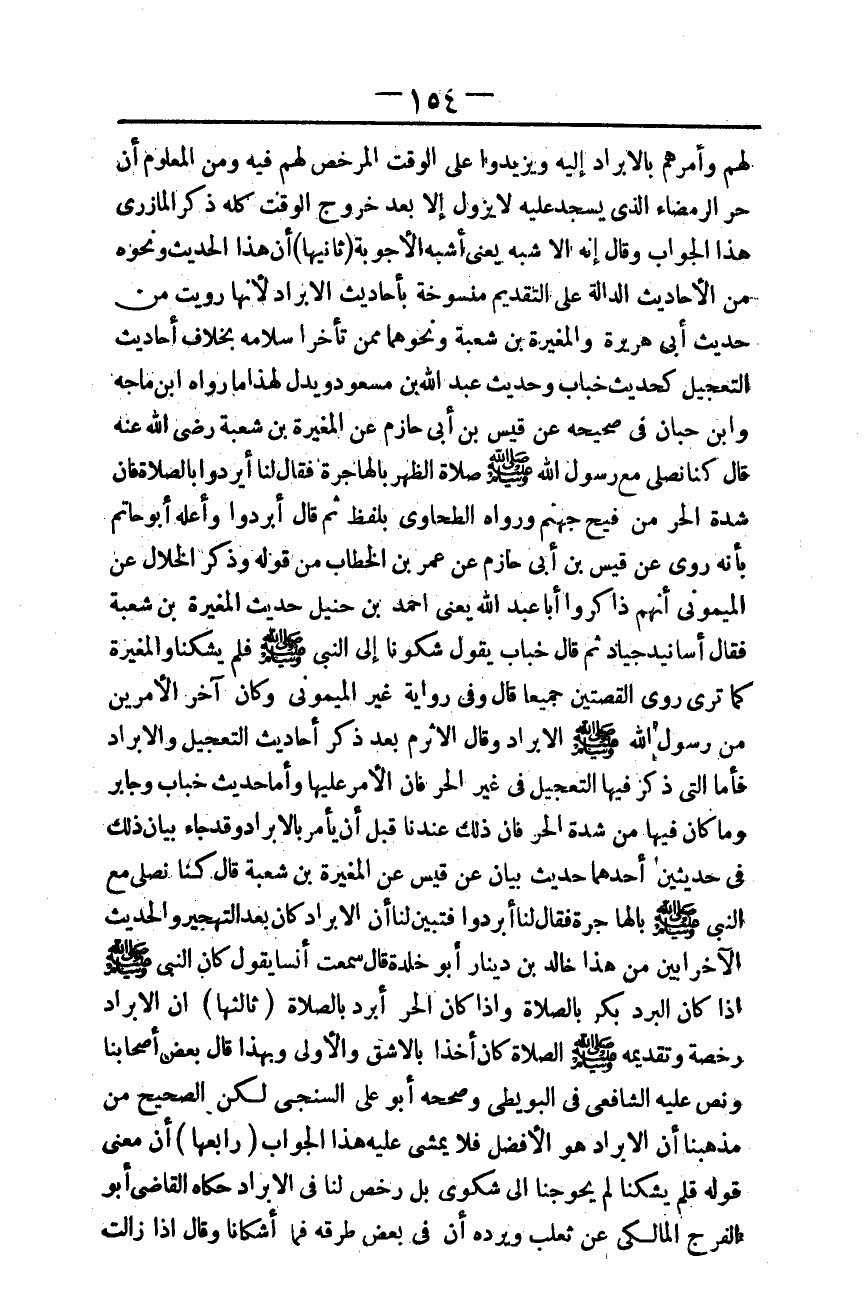 — ١٥٤ —
لهم وأمرهم بالابراد إليه ويزيدوا على الوقت المرخص لهم فيه ومن المعلوم أن
حر الرمضاء الذى يسجد عليه لا يزول إلا بعد خروج الوقت كله ذكر المازرى
هذا الجواب وقال إنه الاشبه يعنى أشبه الأجوبة (ثانيها) أن هذا الحديث ونحوه
من الأحاديث الدالة على التقديم منسوخة بأحاديث الابراد لأنها رويت من
حديث أبى هريرة والمغيرة بن شعبة ونحوهما ممن تأخر اسلامه بخلاف أحاديث
التعجيل كحديث خباب وحديث عبد الله بن مسعود ويدل لهذا ما رواه ابن ماجه
وابن حبان فى صحيحه عن قيس بن أبى حازم عن المغيرة بن شعبة رضى الله عنه
قال كنا نصلى مع رسول الله ﷺ صلاة الظهر بالهاجرة فقال لنا أبردوا بالصلاة فان
شدة الحر من فيح جهنم ورواه الطحاوى بلفظ ثم قال أبردوا وأعله أبو حاتم
بأنه روى عن قيس بن أبى حازم عن عمر بن الخطاب من قوله وذكر الخلال عن
الميمونى أنهم ذاكروا أبا عبد الله يعنى احمد بن حنبل حديث المغيرة بن شعبة
فقال أسانيد جياد ثم قال خباب يقول شكونا إلى النبى ﷺ فلم يشكنا والمغيرة
كما ترى روى القصتين جميعا قال وفى رواية غير الميمونى وكان آخر الأمرين
من رسول الله ﷺ الابراد وقال الاثرم بعد ذكر أحاديث التعجيل والابراد
فأما التى ذكر فيها التعجيل فى غير الحر فان الأمر عليها وأما حديث خباب وجابر
وما كان فيها من شدة الحر فان ذلك عندنا قبل أن يأمر بالابراد وقد جاء بيان ذلك
فى حديثين أحدهما حديث بيان عن قيس عن المغيرة بن شعبة قال كنا نصلى مع
النبى ﷺ بالهاجرة فقال لنا أبردوا فتبين لنا أن الابراد كان بعد التهجير والحديث
الآخر ابين من هذا خالد بن دينار أبو خلدة قال سمعت أنسا يقول كان النبى ﷺ
اذا كان البرد بكر بالصلاة واذا كان الحر أبرد بالصلاة (ثالثها) ان الابراد
رخصة وتقديمه ﷺ الصلاة كان أخذا بالاشق والأولى وبهذا قال بعض أصحابنا
ونص عليه الشافعى فى البويطى وصححه أبو على السنجى لكن الصحيح من
مذهبنا أن الابراد هو الأفضل فلا يمشى عليه هذا الجواب (رابعها) أن معنى
قوله قلم يشكنا لم يحوجنا الى شكوى بل رخص لنا فى الابراد حكاه القاضى أبو
الفرج المالكى عن ثعلب ويرده أن فى بعض طرقه فما أشكانا وقال اذا زالت